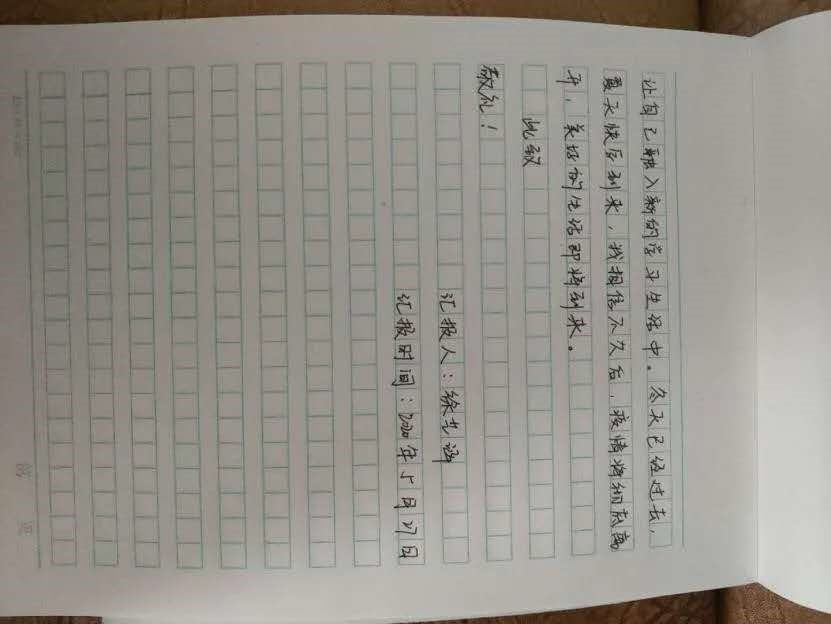 让自己融入新的学习生活中。冬天已经过去，
夏天快要到来，我相信不久后，疫情将彻底离
开，美好的生活即将到来。
此致
敬礼！
汇报人：徐艺涵
汇报时间：2020年5月27日